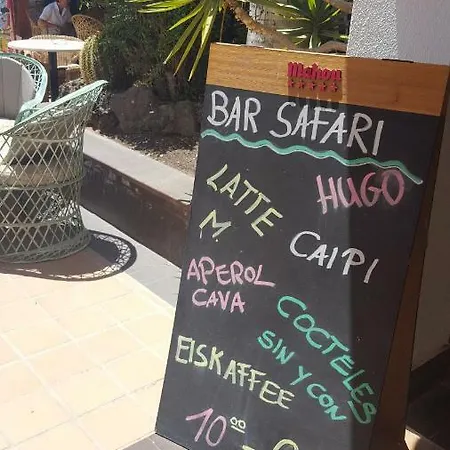 Mahou
BAR SAFARI
LATTE
M.
HUGO
CAIPI
APEROL
CAVA
COCTELES
SIN Y CON
EISKAFFEE
10 00